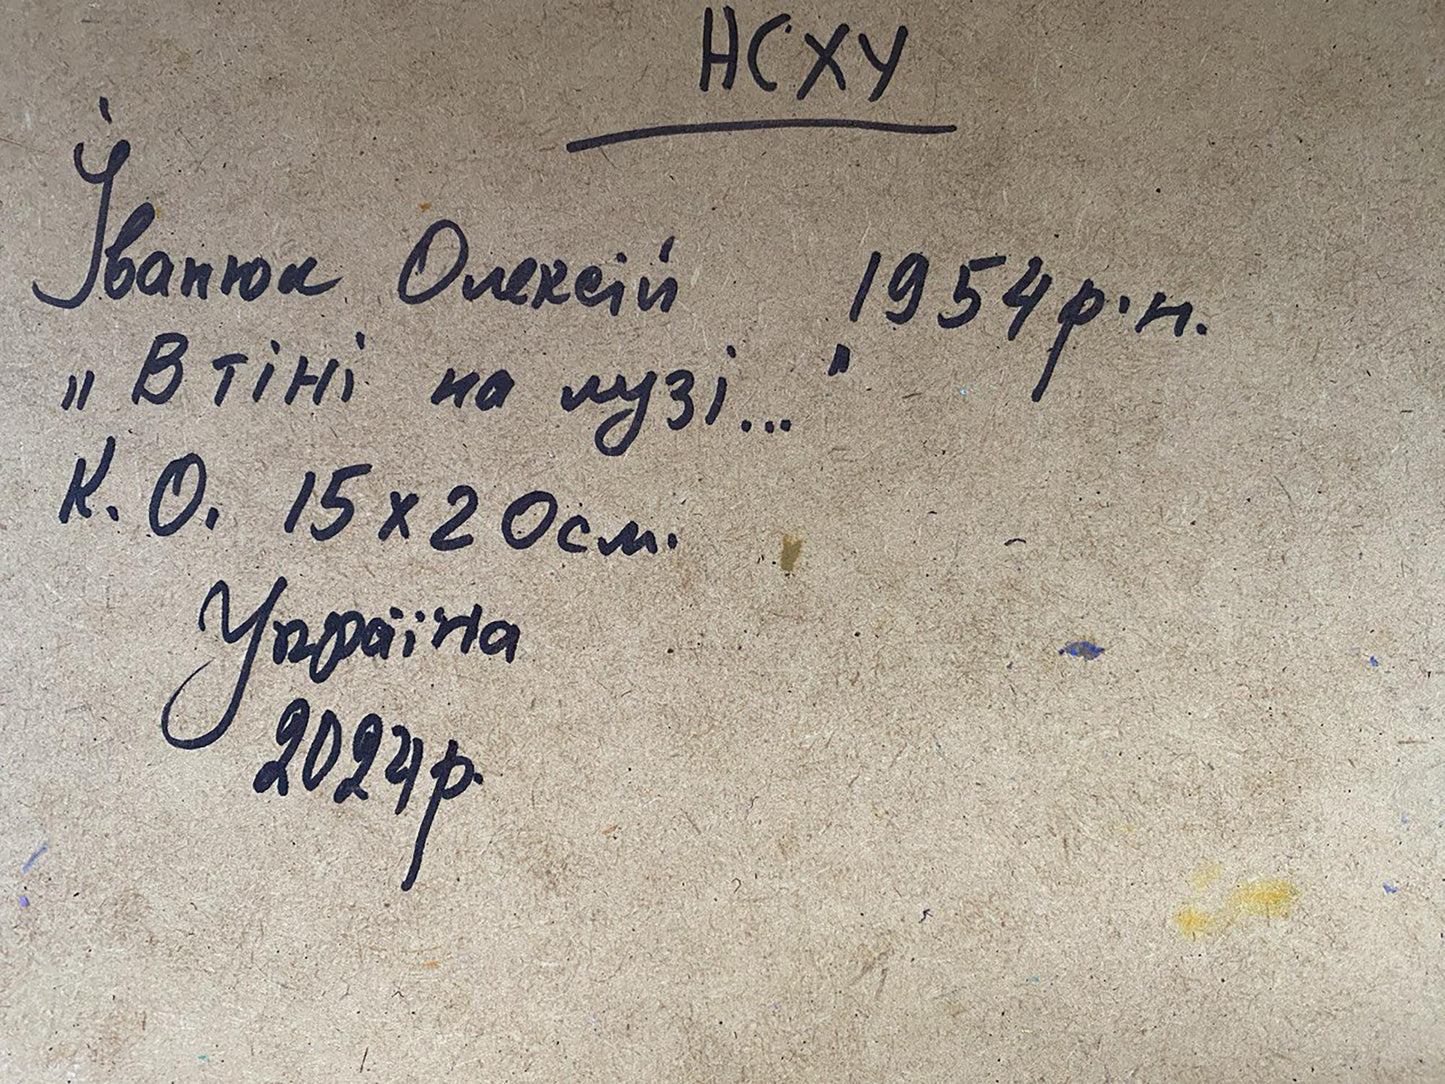 НСХУ
Іванюк Олексій 1954 р.н.
„В тіні на лузі..."
К.О. 15х20см.
Україна
2024р.